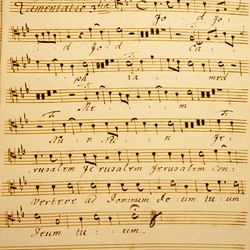 Lamentatio 3tia Jod Jo
d Jod Ca
ph La med
Me m
Nu n Nun Je
rusalem Jerusalem Jerusalem con
vertere ad Dominum de um tu um
Deum tu um.